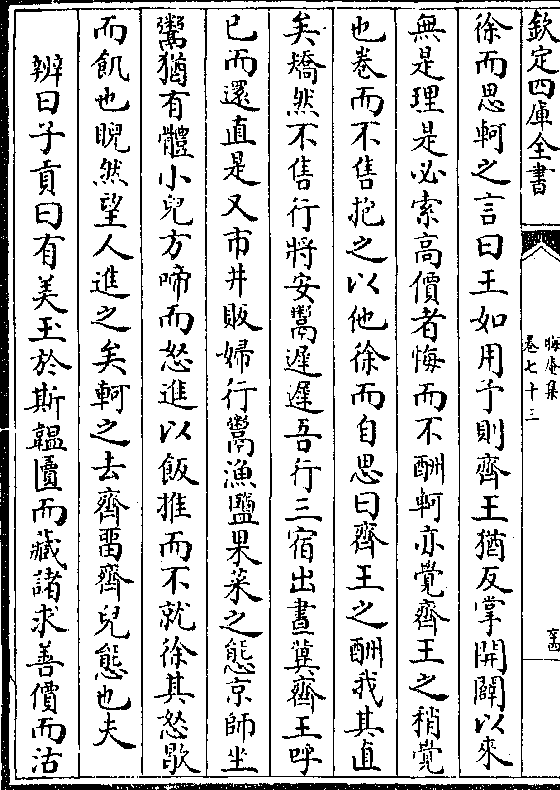 欽定四庫全書
晦庵集
卷七十三
徐而思軻之言曰王如用予則齊王猶反掌開闢以來
無是理是必索高價者悔而不酬軻亦覺齊王之稍覺
也卷而不售抱之以他徐而自思曰齊王之酬我其直
矣矯然不售行將安鬻遲遲吾行三宿出晝冀齊王呼
已而還直是又市井販婦行鬻漁鹽果菜之態京師坐
鬻猶有體小兒方啼而怒進以飯推而不就徐其怒歇
而飢也睨然望人進之矣軻之去齊畱齊兒態也夫
辨曰子貢曰有美玉於斯韞匵而藏諸求善價而沽